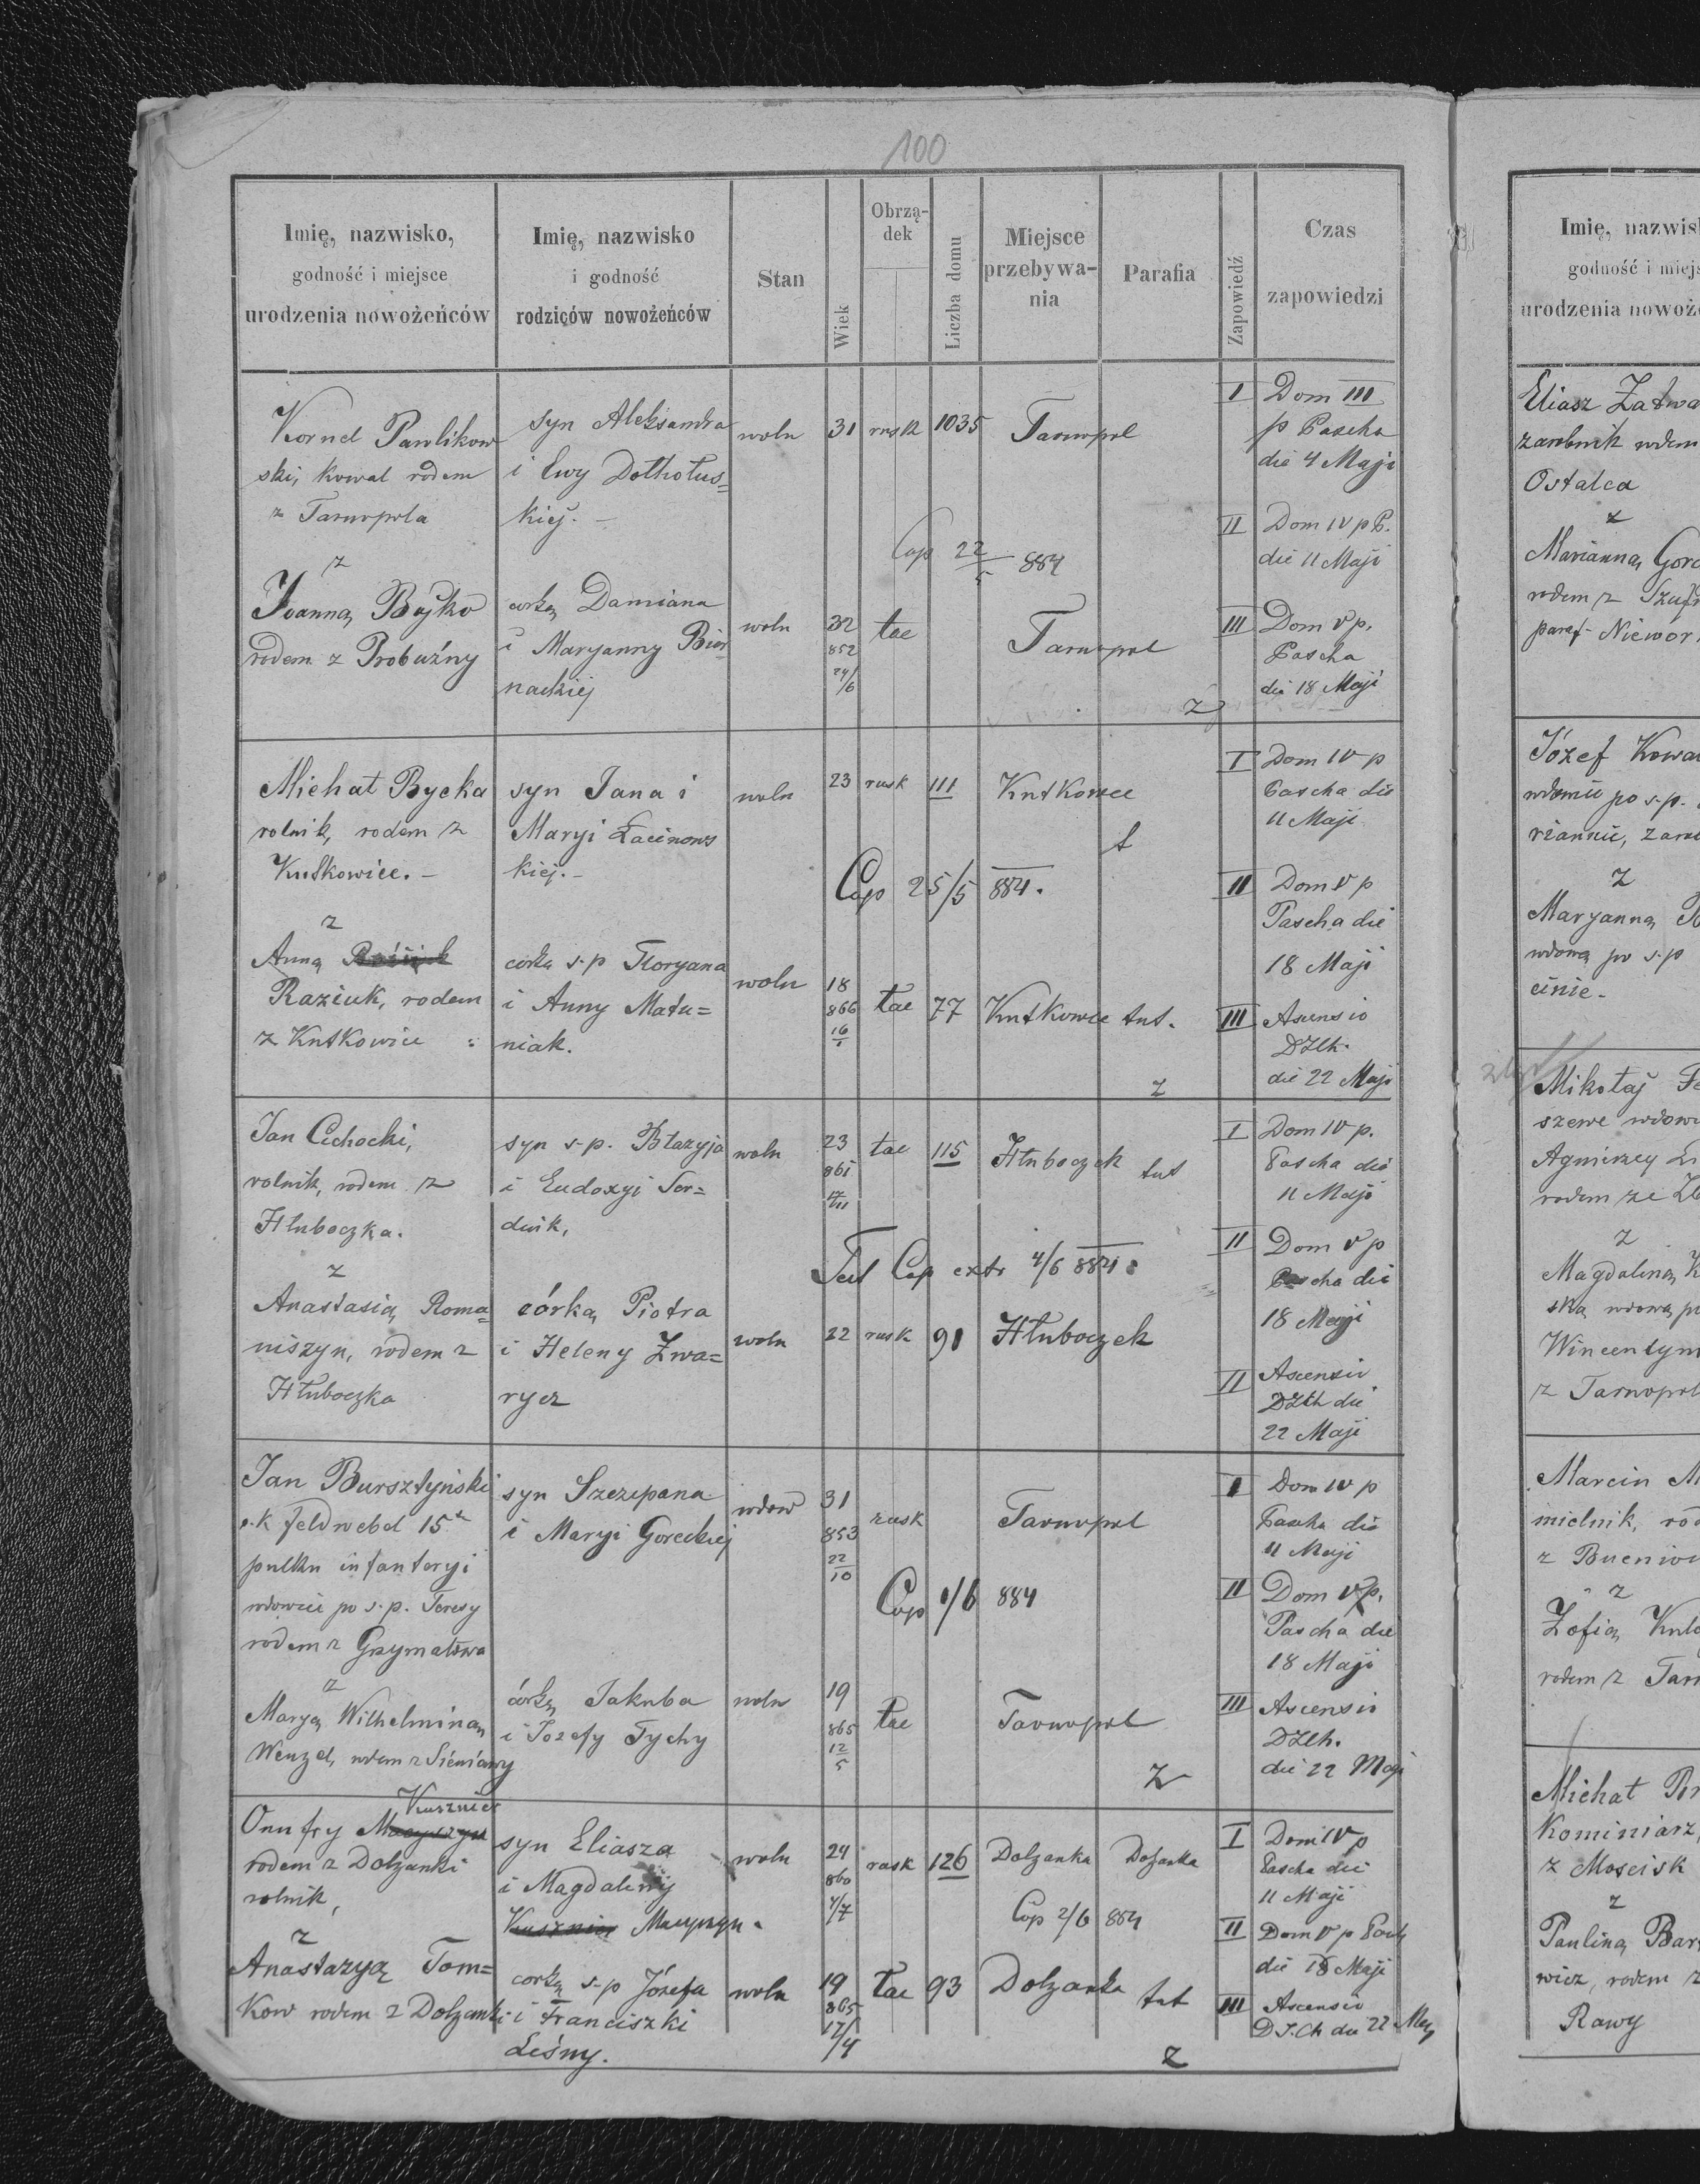 100
Imię, nazwisko,
godność i miejsce
urodzenia nowożeńców
Imię, nazwisko
i godność
rodziców nowożeńców
Stan
Wiek
Obrzą-
dek
Liczba domu
Miejsce
przebywa-
nia
Parafia
Zapowiedź
Czas
zapowiedzi
Kornel Pawlikow
ski, kowal rodem
z Tarnopola
syn Aleksandra
i Ewy Dołhołus=
kiej. -
woln 31 rusk 1035 Tarnopol
I Dom III
p Pascha
die 4 Maji
II Dom IV p P.
die 11 Maji
Cop 22/5 884
z
Joanną Bojko
rodem z Probużny
córką Damiana
i Maryanny Bier
nackiej
woln 32 łac Tarnopol
852
24/6
III Dom V p.
Pascha
die 18 Maji
z
Michał Bycka
rolnik, rodem z
Kutkowiec. -
syn Jana i
Maryi Łacinows
kiej. -
woln 23 rusk 111 Kutkowce
I Dom IV p
Pascha die
11 Maji
Cop 25/5 884.
II Dom V p
Pascha die
18 Maji
z
Anną
Raziuk, rodem
z Kutkowiec
córką s.p Floryana
i Anny Matu=
niak.
woln 18 łac 77 Kutkowce tut.
866
16
III Ascensio
DZCh.
die 22 Maji
z
Jan Cichocki,
rolnik, rodem z
Hłuboczka.
syn s.p. Błazyja
i Eudoxyi Ser=
duik,
woln 23 łac 115 Hłuboczek tut
861
I Dom IV p.
Pascha die
11 Maji
Test Cop extr 4/6 884
II Dom V p
Pascha die
18 Maji
z
Anastasią Roma=
niszyn, rodem z
Hłuboczka
córką Piotra
i Heleny Zwa=
rycz
woln 22 rusk 91 Hłuboczek
II Ascensio
DZCh die
22 Maji
Jan Bursztyński
c.k feldwebel 15
pułku infanteryi
wdowiec po s.p. Teresy
rodem z Grzymałowa
syn Szczepana
i Maryi Goreckiej
wdow 31 rusk Tarnopol
853
22/10
I Dom IV p
Pascha die
11 Maji
Cop 1/6 884
II Dom V p.
Pascha die
18 Maji
z
Maryą Wilhelminą
Wenzel, rodem z Sieniawy
córką Jakuba
i Jozefy Tychy
woln 19 łac Tarnopol
865
12/5
III Ascensio
DZCh.
die 22 Maji
z
Kusznier
Onufry Macyszyn
rodem z Dołżanki
rolnik,
syn Eliasza
i Magdaleny
Kusznier Macyszyn.
woln 24 rusk 126 Dolzanka Dolzanka
860
7/7
I Dom IV p
Pascha die
11 Maji
Cop 2/6 884
II Dom V p Pasch
die 18 Maji
z
Anastazyą Tom=
kow rodem z Dolzanki
corką s.p Józefa
i Franciszki
Leśny.
woln 19 łac 93 Dolzanka tut
865
17/4
III Ascensio
D.J.Ch die 22 Maj
z
Imię, nazwis
godność i miejs
urodzenia nowoż
Eliasz Zatwa
zarobnik rodem
Ostalca
z
Marianną Gor
rodem z Szuf
paraf- Niewor
Józef Kowa
wdowiec po s.p.
z
Maryanną
wdową po s.p
cinie.
Mikołaj Fe
szewc wdow
rodem ze Zb
z
Magdaleną K
ską wdową p
Wincentym
z Tarnopol
Marcin M
mielnik, rod
z Bucniow
z
Zofią Kul
rodem z Tar
Michał Br
Kominiarz,
z Moscisk
z
Pauliną Bar
wicz, rodem z
Rawy